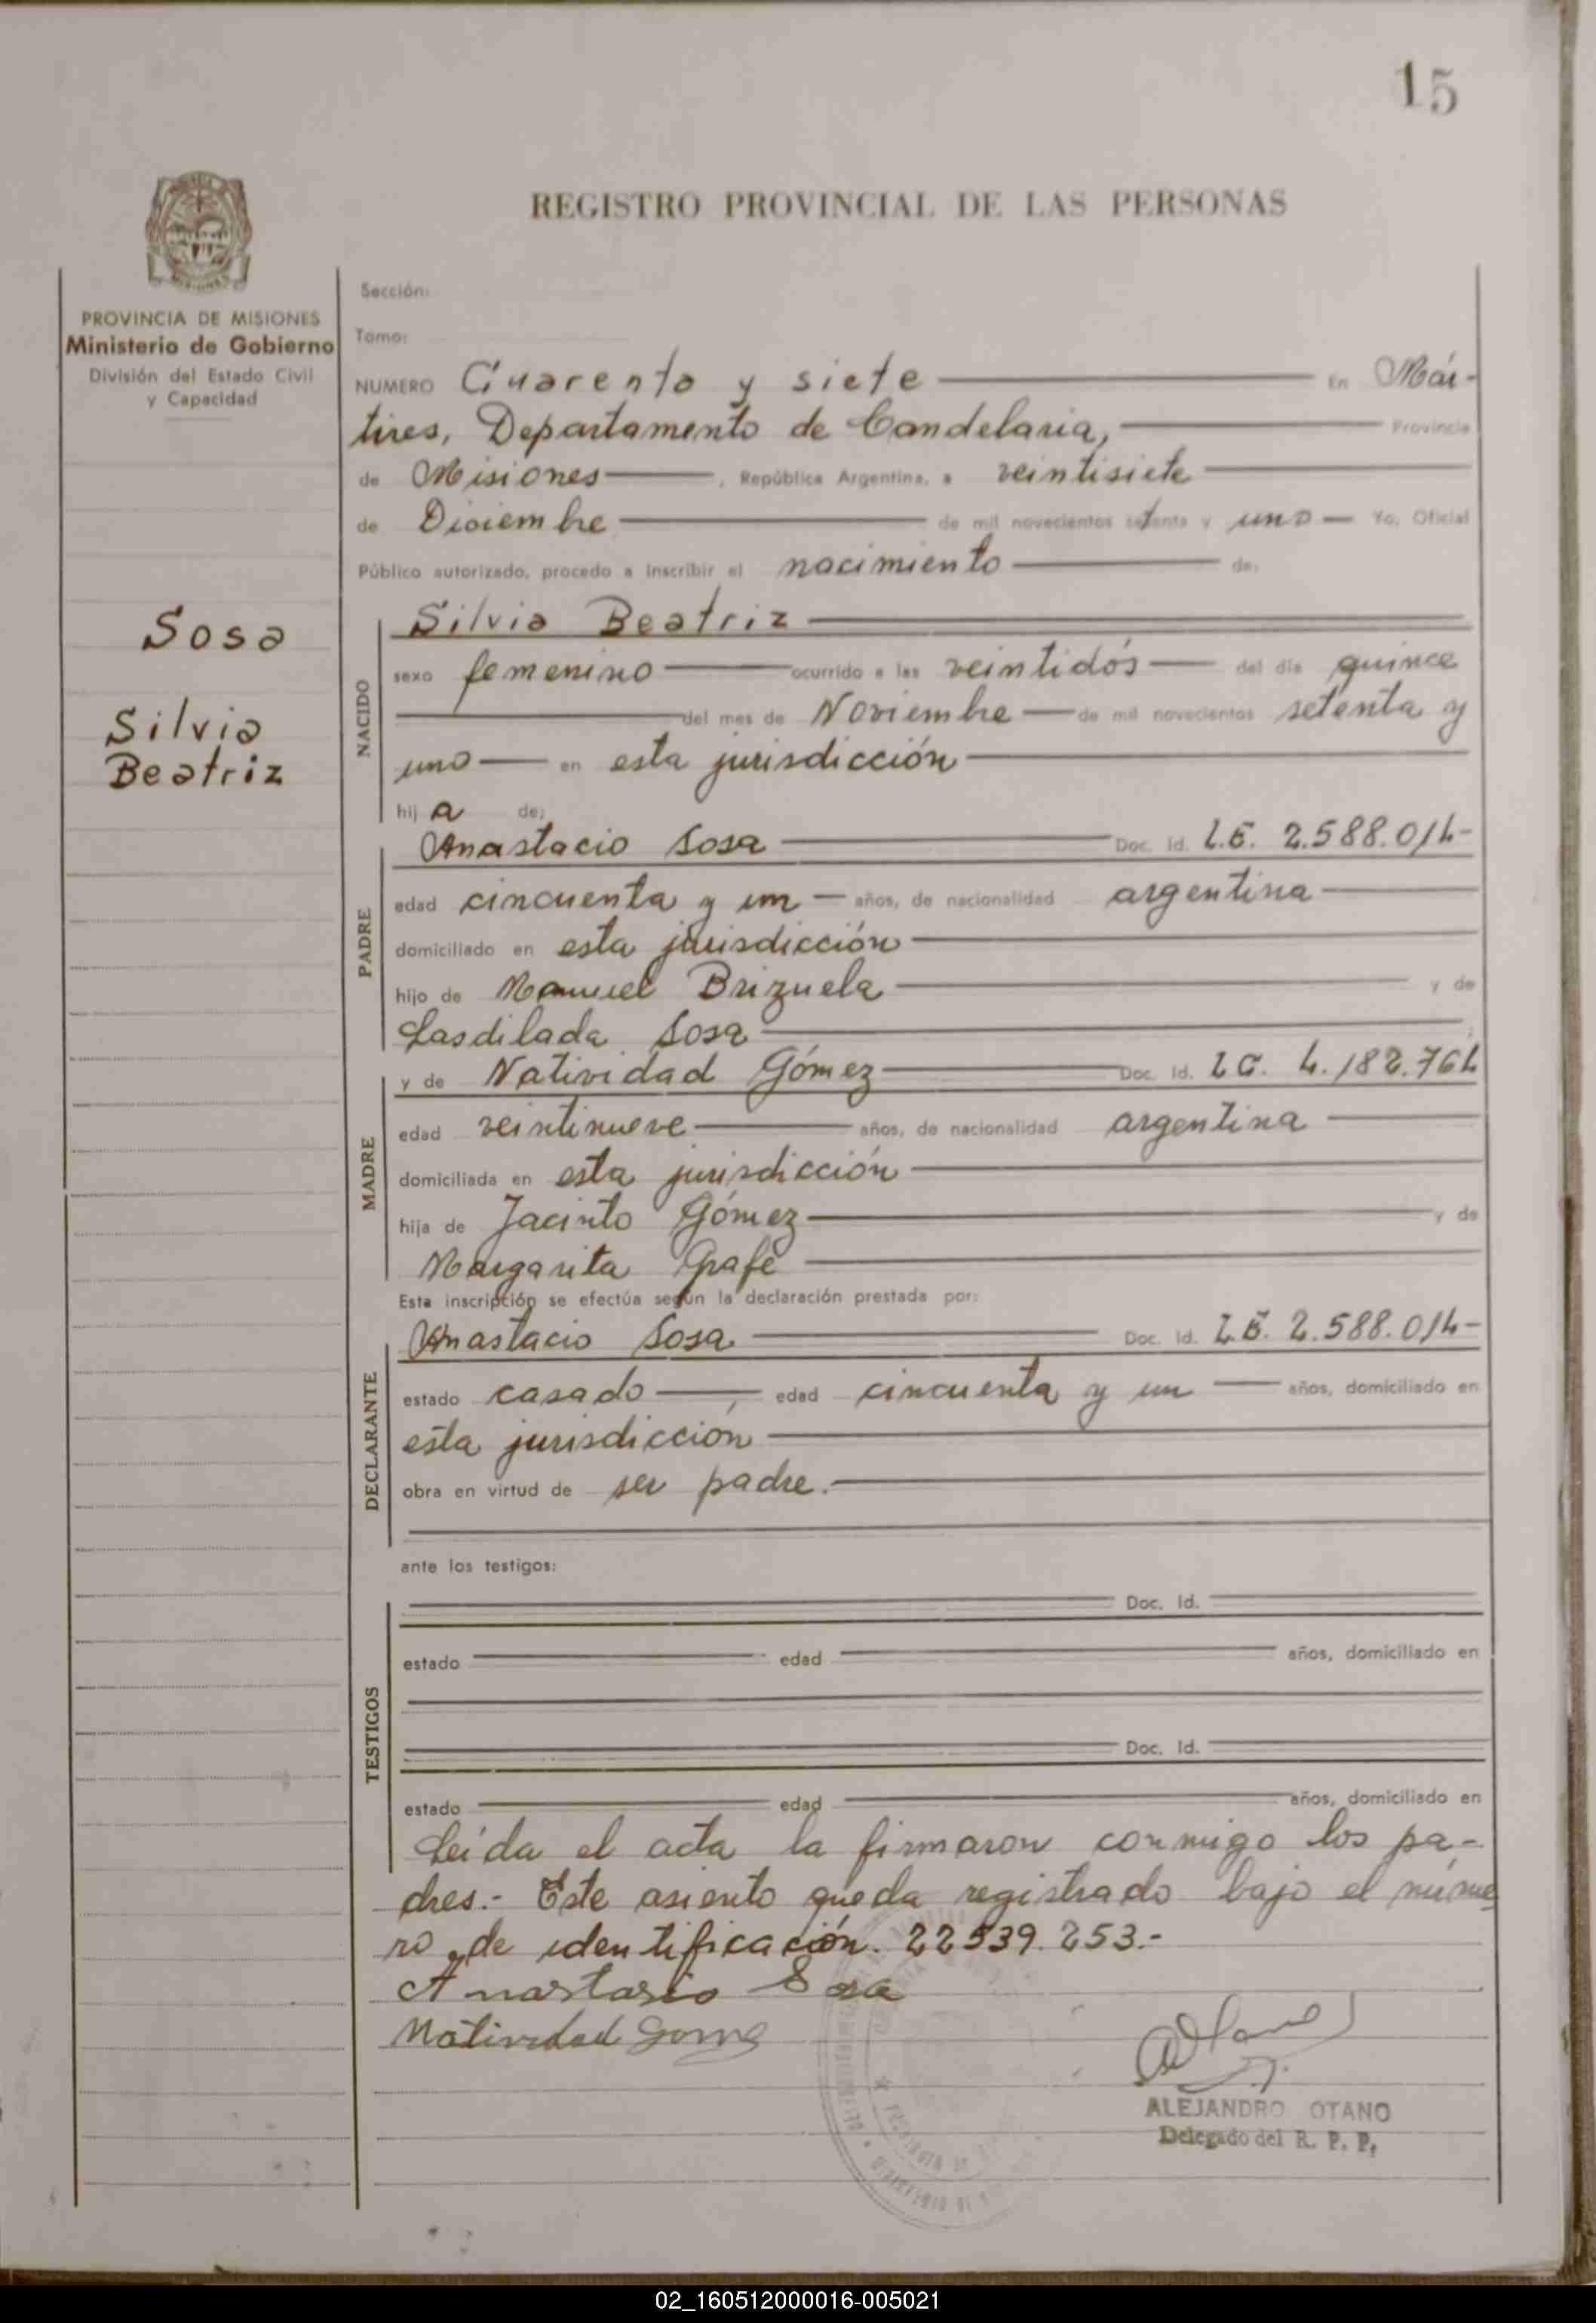 15
REGISTRO PROVINCIAL DE LAS PERSONAS
PROVINCIA DE MISIONES
Ministerio de Gobierno
División del Estado Civil
y Capacidad
Sosa
Silvia
Beatriz
Sección:
Tomo:
NUMERO Cuarenta y siete En Már-
tires, Departamento de Candelaria, Provincia
de Misiones, República Argentina, a veintisiete
de Diciembre de mil novecientos setenta y uno Yo, Oficial
Público autorizado, procedo a inscribir el nacimiento de:
NACIDO
Silvia Beatriz
sexo femenino ocurrido a las veintidós del día quince
del mes de Noviembre de mil novecientos setenta y
uno en esta jurisdicción
hij a de;
PADRE
Anastacio Sosa Doc. Id. L.E. 2.588.014-
edad cincuenta y un años, de nacionalidad argentina
domiciliado en esta jurisdicción
hijo de Manuel Brizuela y de
Lasdilada Sosa
MADRE
y de Natividad Gómez Doc. Id. LC. 4.182.764
edad veintinueve años, de nacionalidad argentina
domiciliada en esta jurisdicción
hija de Jacinto Gómez y de
Margarita Grafe
Esta inscripción se efectúa según la declaración prestada por:
DECLARANTE
Anastacio Sosa Doc. Id. L.E. 2.588.014-
estado casado, edad cincuenta y un años, domiciliado en
esta jurisdicción
obra en virtud de ser padre.
ante los testigos:
TESTIGOS
Doc. Id.
estado edad años, domiciliado en
Doc. Id.
estado edad años, domiciliado en
Leída el acta la firmaron conmigo los pa-
dres.- Este asiento queda registrado bajo el núme
ro de identificación. 22539.253.-
Anastasio Sosa
Natividad Gomez
ALEJANDRO OTANO
Delegado del R. P. P.
02_160512000016-005021